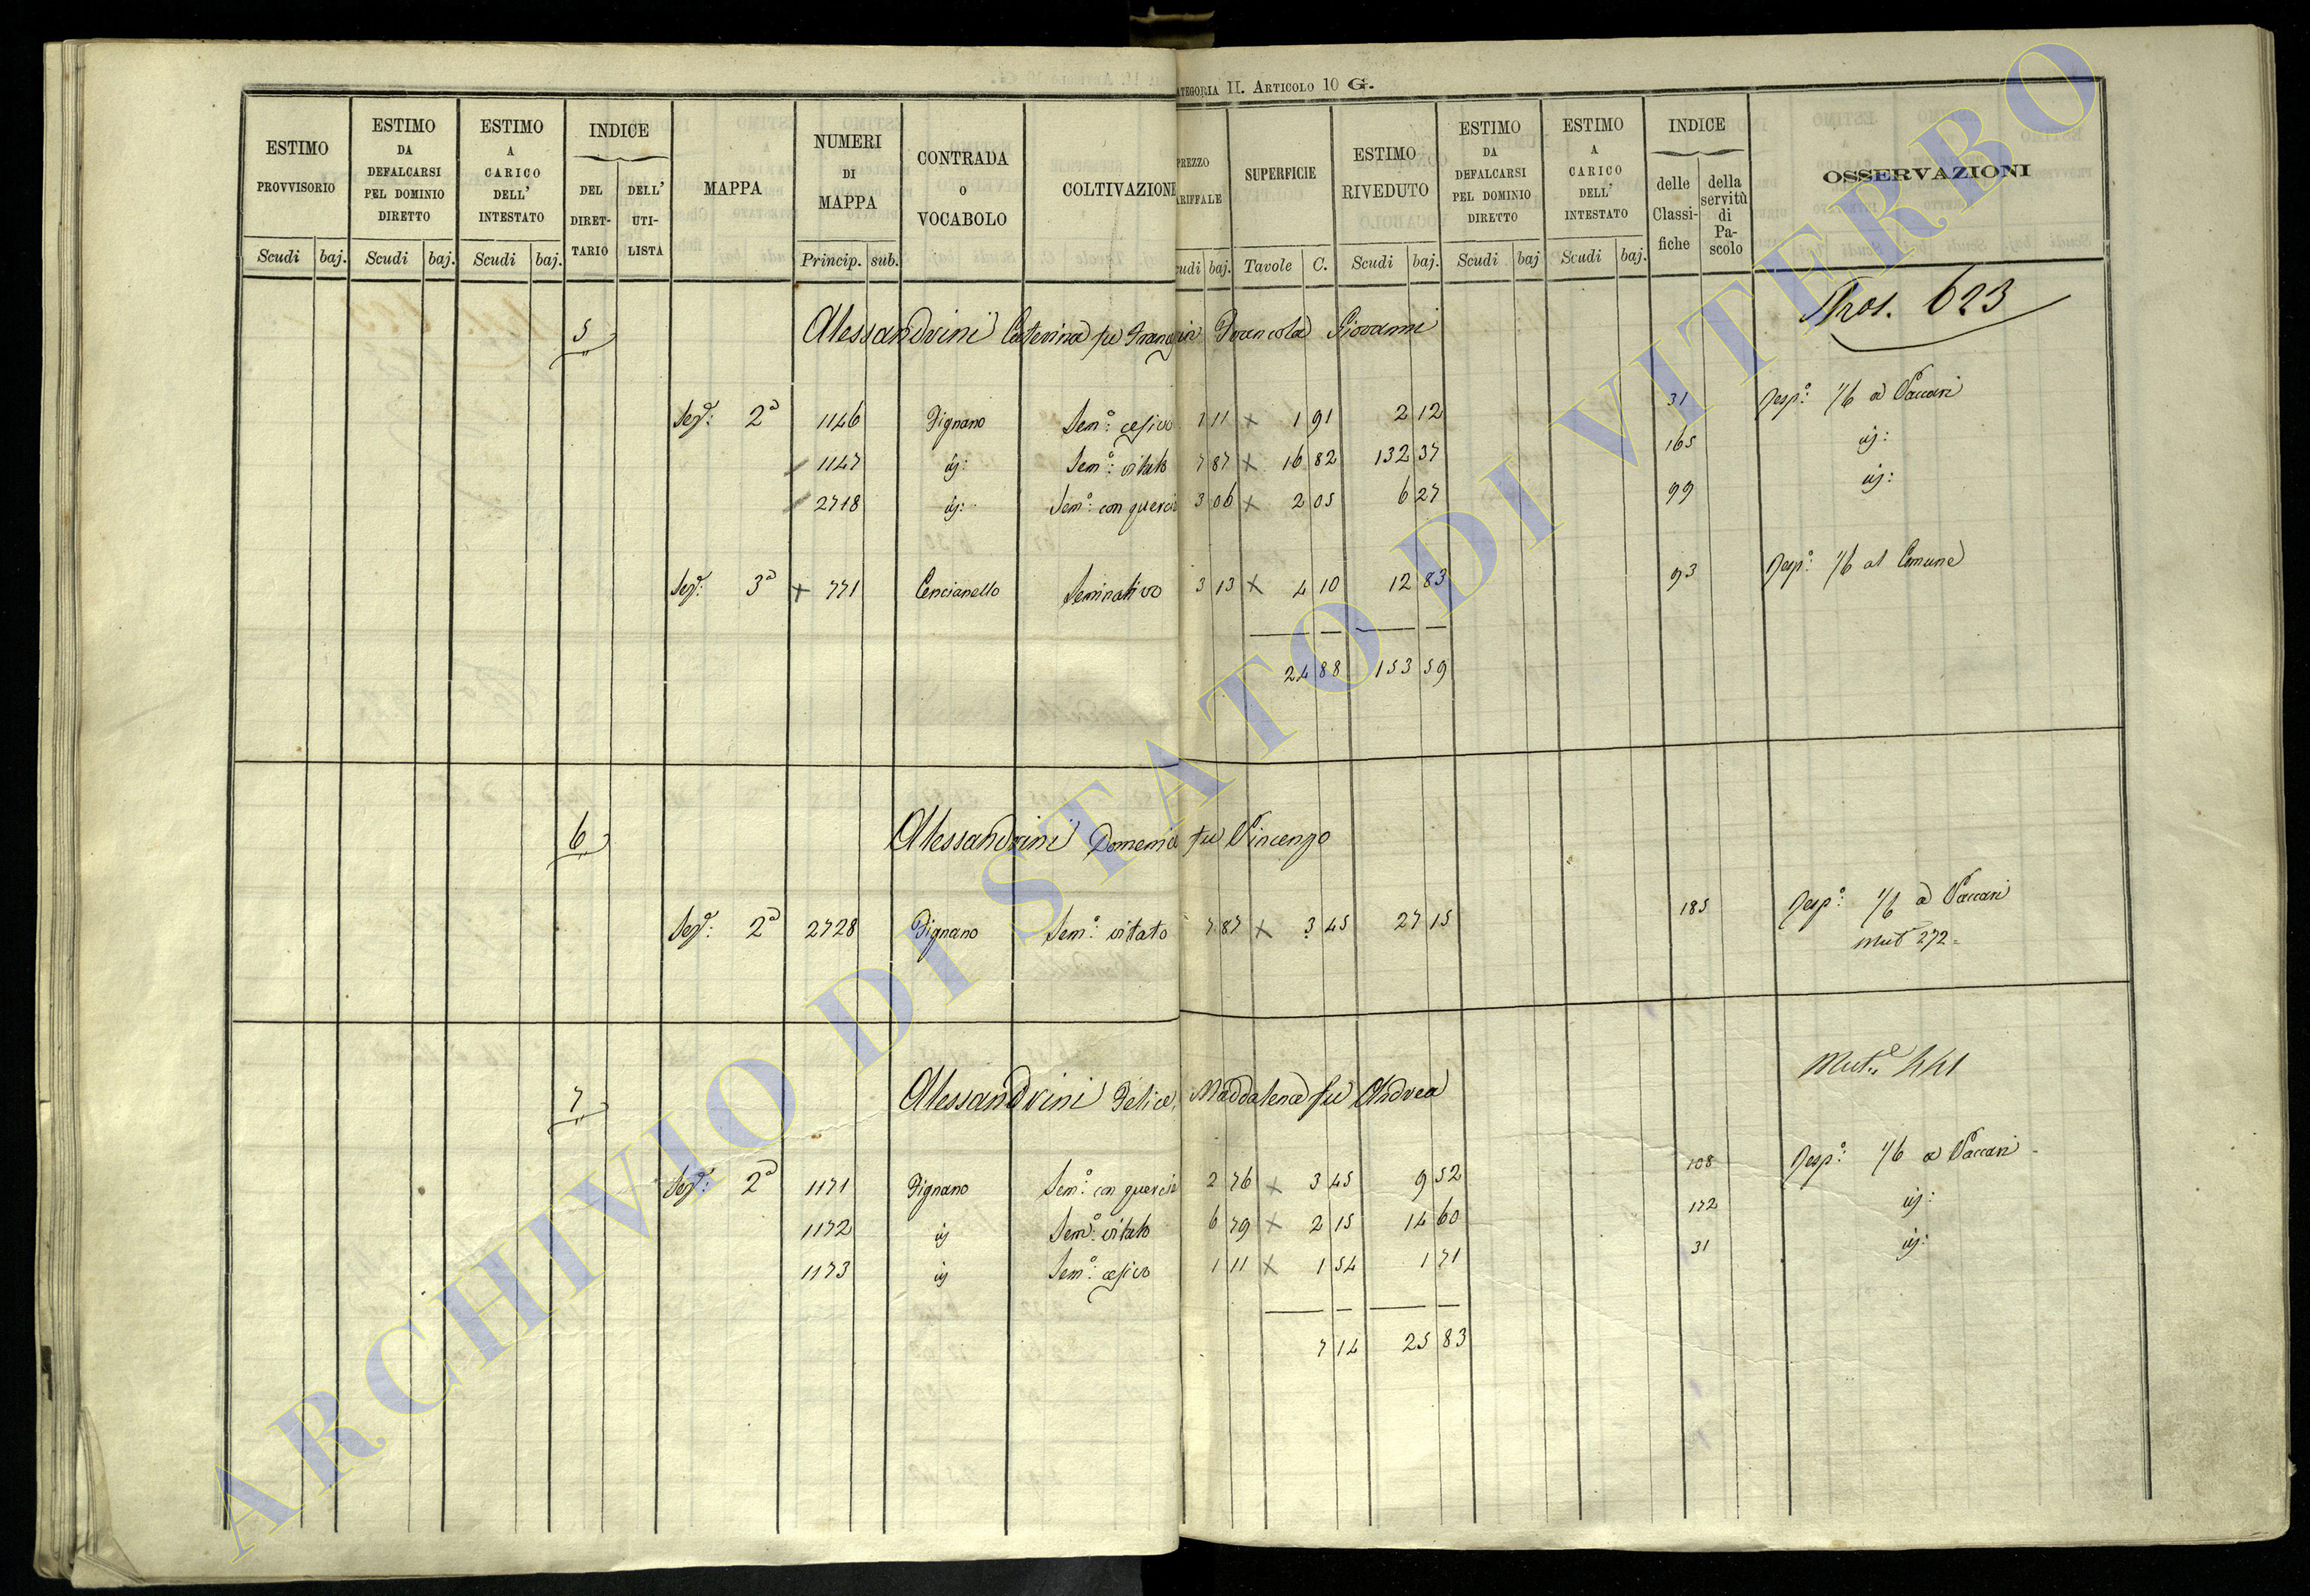 CATEGORIA II. ARTICOLO 10 G.
ESTIMO PROVVISORIO Scudi baj.
ESTIMO DA DEFALCARSI PEL DOMINIO DIRETTO Scudi baj.
ESTIMO A CARICO DELL' INTESTATO Scudi baj.
INDICE DEL DIRETTARIO DELL' UTILISTA
MAPPA
NUMERI DI MAPPA Princip. sub.
CONTRADA O VOCABOLO
COLTIVAZIONE
PREZZO TARIFFALE Scudi baj.
SUPERFICIE Tavole C.
ESTIMO RIVEDUTO Scudi baj.
ESTIMO DA DEFALCARSI PEL DOMINIO DIRETTO Scudi baj
ESTIMO A CARICO DELL' INTESTATO Scudi baj.
INDICE delle Classifiche della servitù di Pascolo
OSSERVAZIONI
5 Alessandrini Caterina fu Giovanni
623
2ª 1146 Pignano Sem:º 1 11 x 1 91 2 12 31 Resp:º 1/6 a Vaccari
1147 id: Sem:º vitato 7 87 x 16 82 132 37 165 id:
2718 id: Sem:º con querce 3 06 x 2 05 6 27 99 id:
3ª x 771 Cencianello Seminativo 3 13 x 4 10 12 83 93 Resp:º 1/6 al Comune
24 88 153 59
6 Alessandrini fu Vincenzo
2ª 2728 Pignano Sem:º vitato 7 87 x 3 45 27 15 185 Resp:º 1/6 a Vaccari
Mut 272
7 Alessandrini Felice, Maddalena fu Andrea Mut:e 441
2ª 1171 Pignano Sem:º con querce 2 76 x 3 45 9 52 108 Resp:º 1/6 a Vaccari
1172 id Sem:º vitato 6 79 x 2 15 14 60 172 id:
1173 id Sem:º 1 11 x 1 54 1 71 31 id:
7 14 25 83
ARCHIVIO DI STATO DI VITERBO